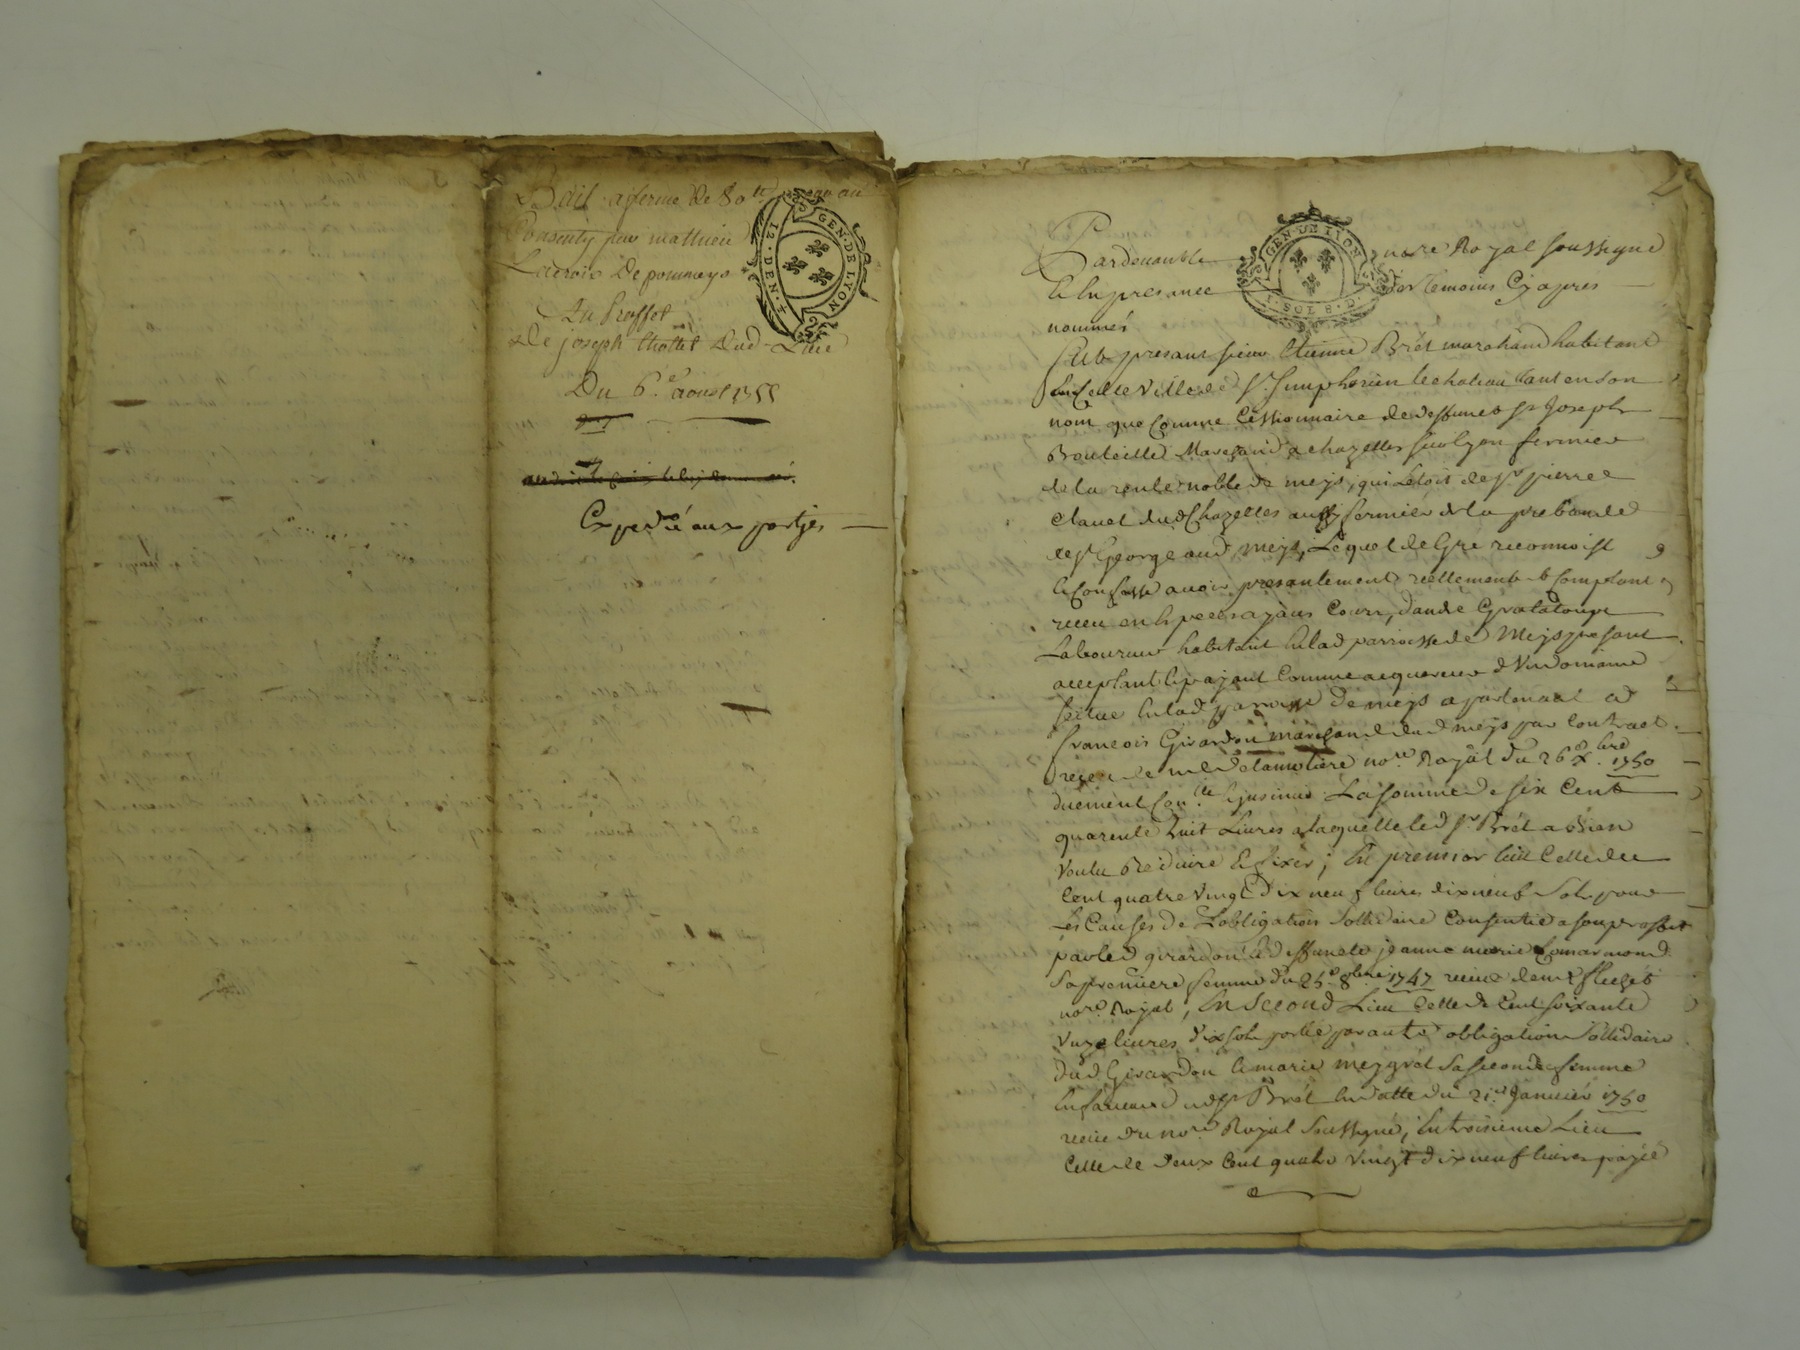 Bail a ferme de 80 ᵗᵗ par an
Consenty par mathieu
Lacroix De pommeys
Au Proffet
De joseph thollet dud. Lieu
Du 6.e aoust 1755
Expedié aux partjes
GEN. DE LYON
12. DEN. N.
2
Pardevant le nore Royal soussigné
Et En presance des temoins Cy apres
nommés
fut presant sieur Etienne Brét marchand habitant
En Cette Ville de St. Simphorien le chateau tant en son
nom que Comme Cessionnaire de deffunct sr Joseph
Bouteille Marchand de chazelles sur lyon fermier
de la rente noble de meys, qui L'etoit de sr pierre
Clauel dud. Chazelles aussy fermier de la prebande
de st George aud. meys, Lequel de Gre reconnoist
et Confesse avoir presantement réellement et Comptant
receu en Especes ayans Cours, d'andre Grataloup
Laboureur habitant En lad. parroisse de Meys presant
acceptant et payant Comme acquereur d'Un domaine
scitué En lad. parroisse de meys apartenant a
francois Girardon marchand dud. meys par Contract
receu de me Delamotiere nore. Royal du 26.e Xbre 1750
duement Con.lle et jnsinué La somme de six Cent
quarente huit Livres a laquelle led. sr. Brét a Bien
Voulu Reduire et fixer; En premier lieu Celle de
Cent quatre vingt dix neuf livres dix neuf sols pour
Les Causes de L'obligation sollidaire Consentie a son proffit
par led. girardon et deffuncte jeanne marie
Sa premiere femme du 25.e 8bre 1747 receue de me
nore. Royal, En Second Lieu Celle de Cent soixante
Unze livres dix sols portée par autre obligation Sollidaire
dud. Girardon et marie meygret Sa seconde femme
En faveur dud. sr Brét En datte du 21.e Janvier 1750
receue du nore. Royal Soussigné, En troisieme Lieu
Celle de Deux Cent quatre vingt dix neuf livres payée
GEN. DE LYON
1. SOL 8. D.